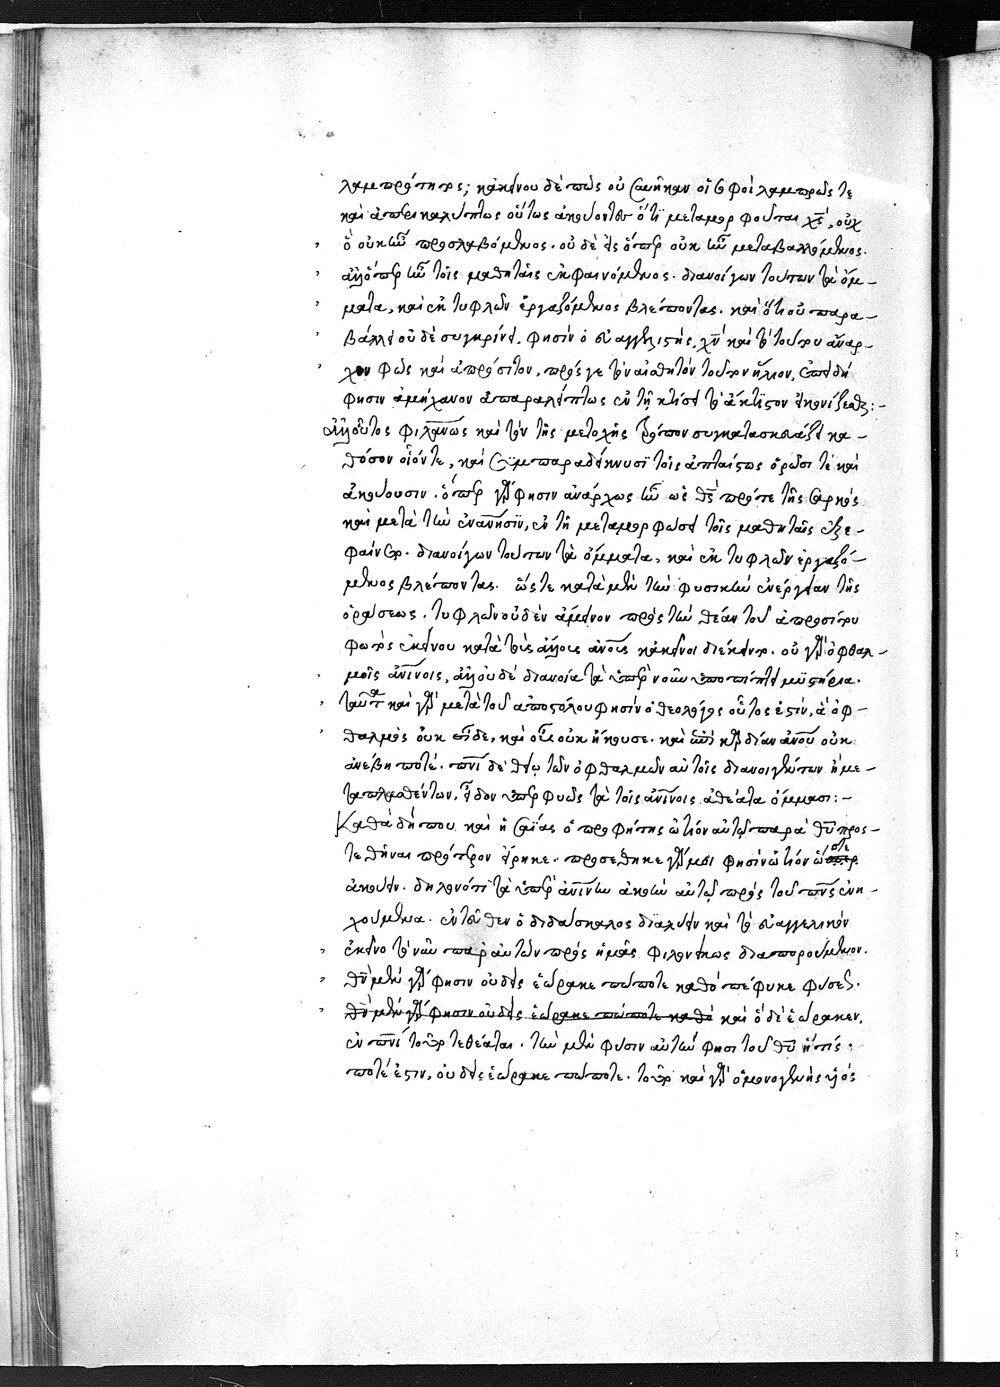 λαμπρότητος; κἀκείνου δὲ πῶς οὐ συνῆκαν οἱ σοφοὶ λαμπρῶς τε
καὶ ἀπερικαλύπτως οὕτως ἀκούοντες ὅτι μεταμορφοῦται χς, οὐχ
ὃ οὐκ ἦν προσλαβόμενος. οὐδὲ εἰς ὅπερ οὐκ ἦν μεταβαλλόμενος.
ἀλλ' ὅπερ ἦν τοῖς μαθηταῖς ἐκφαινόμενος. διανοίγων τούτων τὰ ὄμ-
ματα, καὶ ἐκ τυφλῶν ἐργαζόμενος βλέποντας. καὶ ὅτι οὐ παρα-
βάλλει οὐδὲ συγκρίνει, φησὶν ὁ εὐαγγελιστής, χν καὶ τὸ τούτου ἄναρ-
χον φῶς καὶ ἀπρόσιτον, πρός γε τὸν αἰσθητὸν τουτονὶ ἥλιον, ἐπειδή
φησιν ἀμήχανον ἀπαραλείπτως ἐν τῇ κτίσει τὸ ἄκτιστον εἰκονίζεσθαι:-
Ἀλλ' οὗτος φιλανως καὶ τὸν τῆς μετοχῆς τρόπον συγκατασκευάζει κα-
θόσον οἷόν τε, καὶ συμπαραδείκνυσι τοῖς ἀπταίστως ὁρῶσί τε καὶ
ἀκούουσιν. ὅπερ γάρ φησιν ἀνάρχως ἦν ὡς θς πρό τε τῆς σαρκὸς
καὶ μετὰ τὴν ἐνανησιν, ἐν τῇ μεταμορφώσει τοῖς μαθηταῖς ἐξε-
φαίνετο. διανοίγων τούτων τὰ ὄμματα, καὶ ἐκ τυφλῶν ἐργαζό-
μενος βλέποντας. ὥστε κατὰ μὲν τὴν φυσικὴν ἐνέργειαν τῆς
ὁράσεως. τυφλῶν οὐδὲν ἄμεινον πρὸς τὴν θέαν τοῦ ἀπροσίτου
φωτὸς ἐκείνου κατὰ τοὺς ἄλλους ἀνους κἀκεῖνοι διέκειντο. οὐ γὰρ ὀφθαλ-
μοῖς ἀνινοις, ἀλλ' οὐδὲ διανοίᾳ τὰ ὑπὲρ νοῦν ὑποπίπτει μυστήρια.
ταῦτα καὶ γὰρ μετὰ τοῦ ἀποστόλου φησὶν ὁ θεολόγος οὗτός ἐστιν, ἃ ὀφ-
θαλμὸς οὐκ εἶδε, καὶ οὖς οὐκ ἤκουσε. καὶ ἐπὶ καρδίαν ἀνου οὐκ
ἀνέβη ποτέ. πνι δὲ θείῳ τῶν ὀφθαλμῶν αὐτοῖς διανοιχθέντων ἢ με-
ταπλασθέντων, εἶδον ὑπερφυῶς τὰ τοῖς ἀνινοις ἀθέατα ὄμμασι:-
Καθὰ δήπου καὶ ἡσαΐας ὁ προφήτης ὠτίον αὐτῷ παρὰ θυ προσ-
τεθῆναι πρότερον εἴρηκε. προσέθηκε γάρ μοί φησιν ὠτίον ὥστε
ἀκούειν. δηλονότι τὰ ὑπὲρ ἀνινην ἀκοὴν αὐτῷ πρὸς τοῦ πνς ἐνη-
χούμενα. ἐντεῦθεν ὁ διδάσκαλος διαλύειν καὶ τὸ εὐαγγελικὸν
ἐκεῖνο τὸ νῦν παρ' αὐτῶν πρὸς ἡμᾶς φιλονείκως διαπορούμενον.
θν μὲν γάρ φησιν οὐδεὶς ἑώρακε πώποτε καθὸ πέφυκε φύσεως.
θν μὲν γάρ φησιν οὐδεὶς ἑώρακε πώποτε καθὸ καὶ ὃ δὲ ἑώρακεν,
ἐν πνι τοῦτο τεθέαται. τὴν μὲν φύσιν αὐτὴν φησὶ τοῦ θυ ἥτις
ποτέ ἐστιν, οὐδεὶς ἑώρακε πώποτε. τοῦτο καὶ γὰρ ὁ μονογενὴς υἱὸς